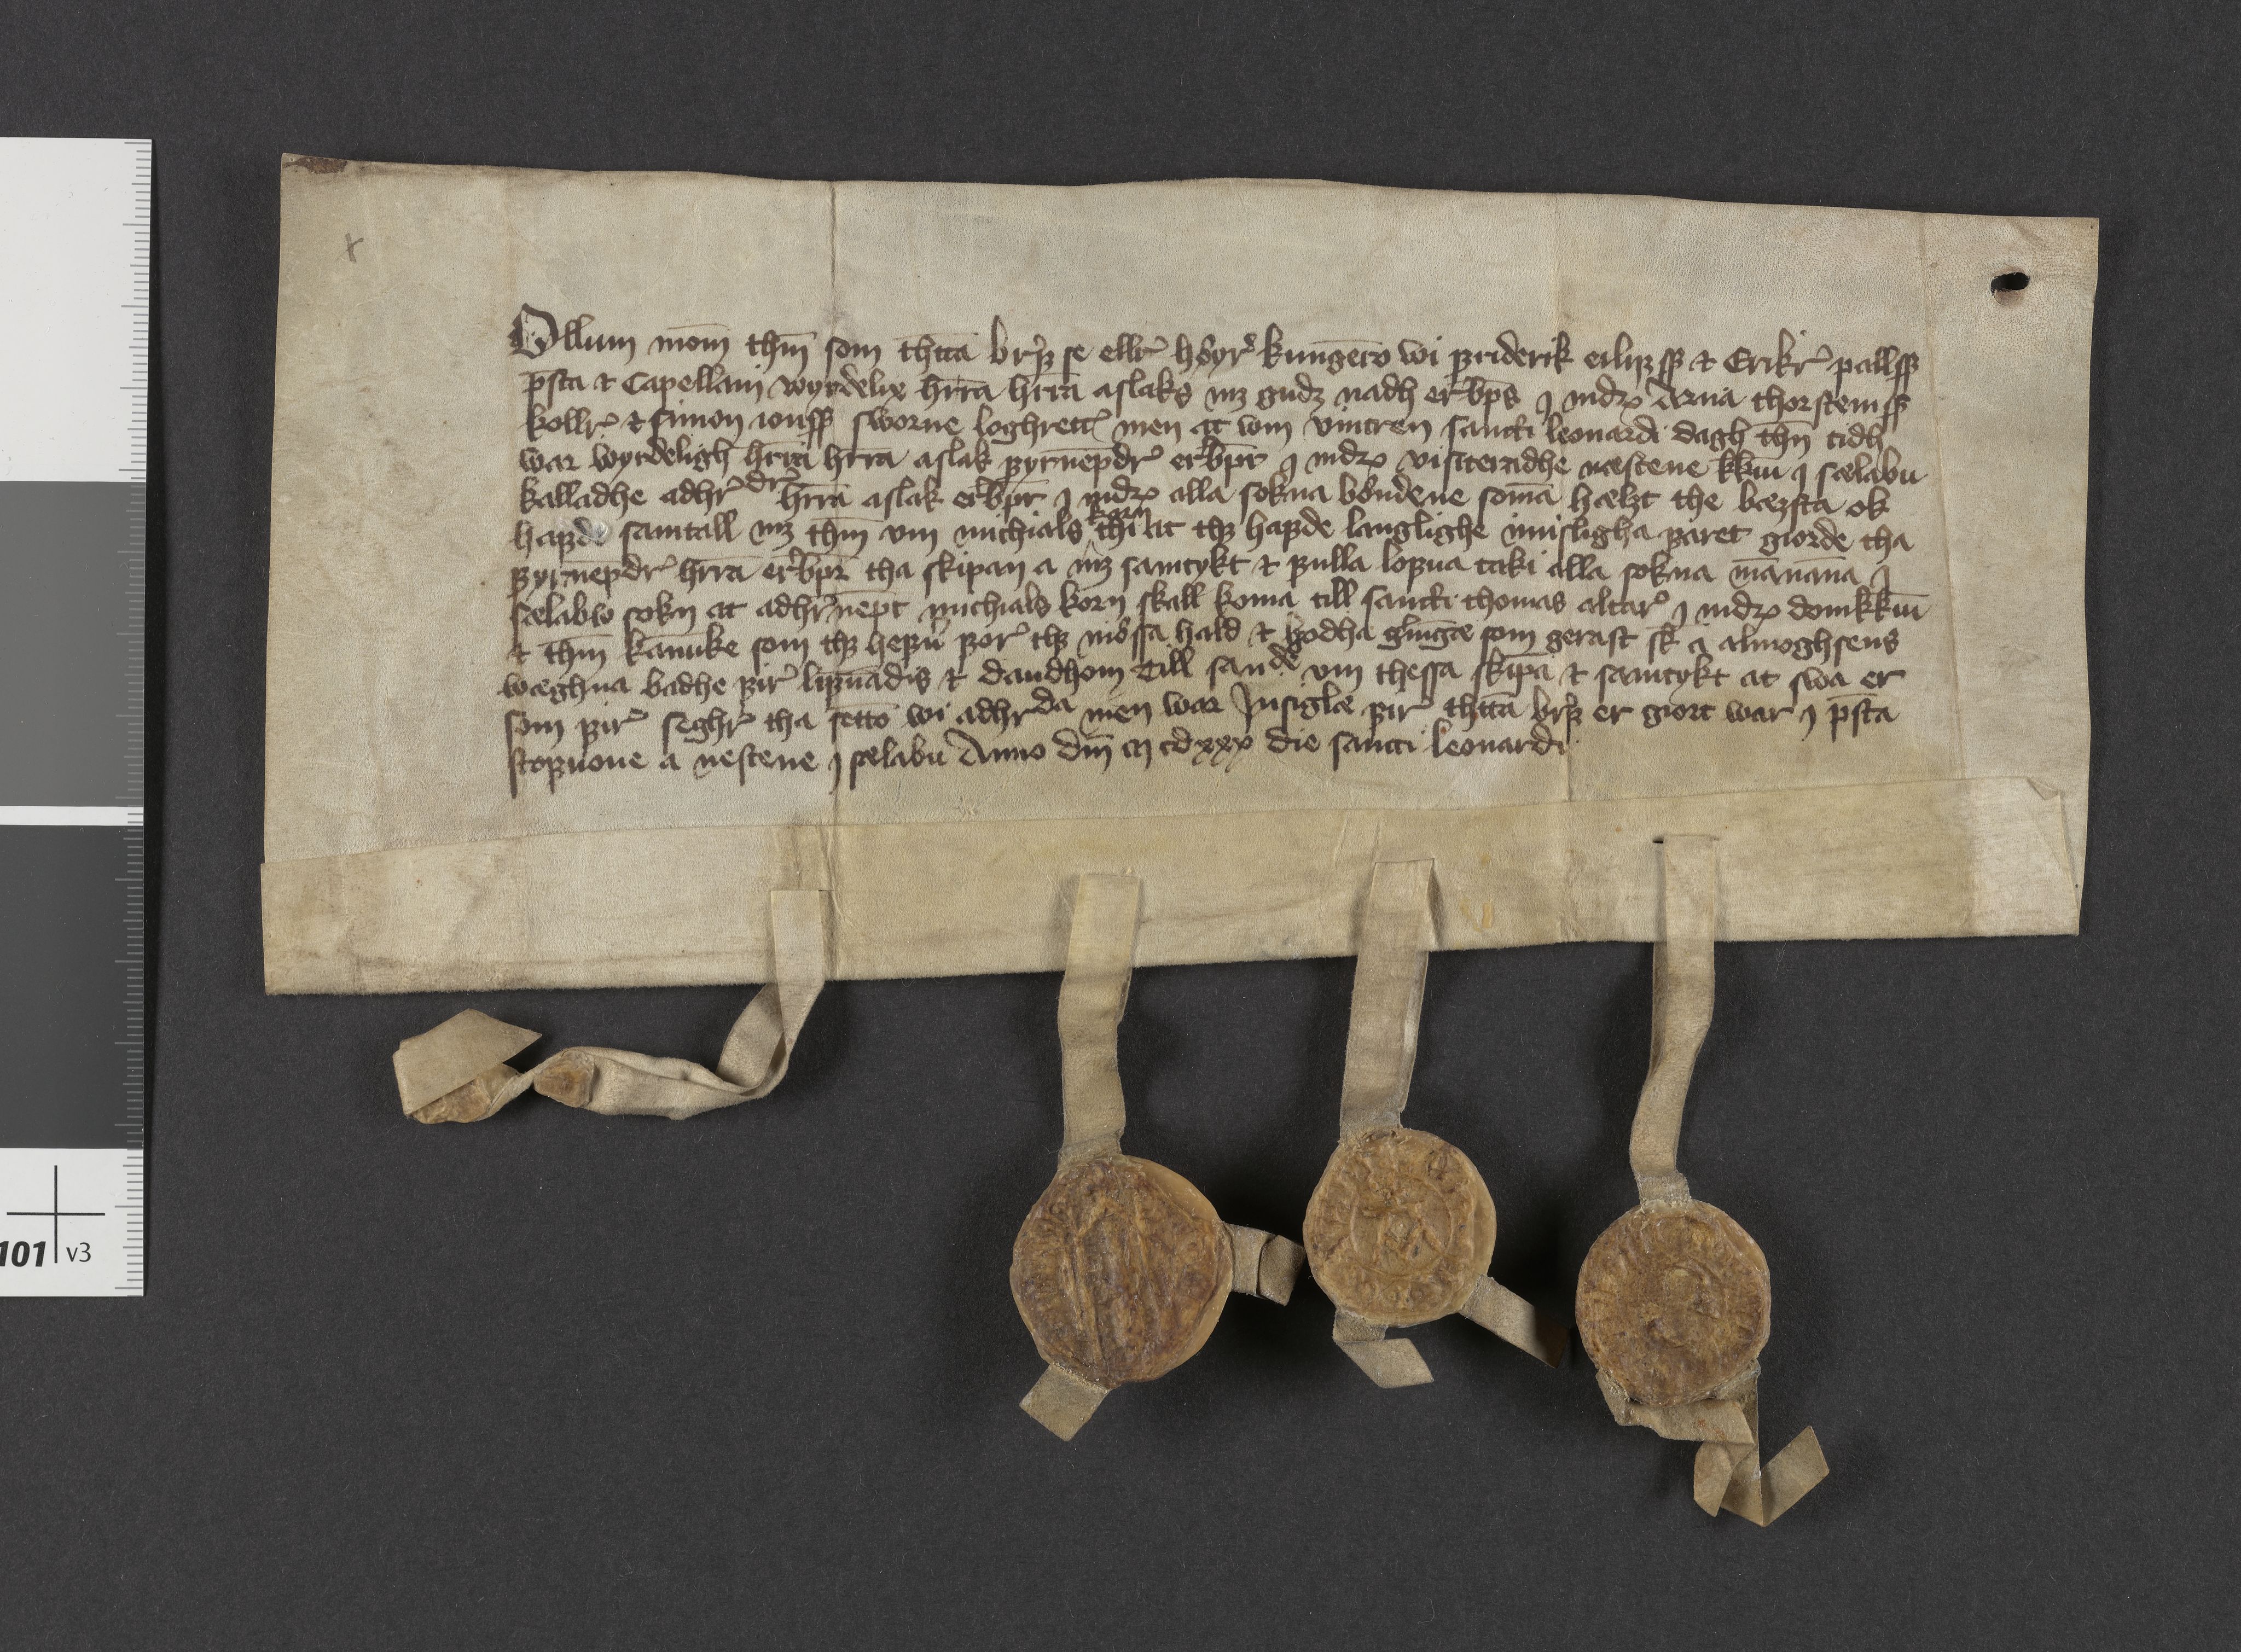 Ollum mom̄ thm̄ som thtta brꝼ se ellr hỏyr kungero wi ꝼriderik eiliꝼss ⁊ Erikr pallss
psta ⁊ Capellani wyrdelix hrra hrra aslaks mz gudz nadh erbps j nidr Arna thorstenss
kollr ⁊ simon ionss sworne loghrett men at wm vintren sancti leonardi dagh thn tidh
war wyrdeligh hrra hrra aslak ꝼyrnepdr erbpr j nidr visiteradhe nestene kkiu j sælabu
kalladhe adhrdr hrra aslak erbpr j nidr alla sokna bỏndene soma hælzt the bæzsta ok
haꝼde samtall mz thm vm michials korn thi at thz haꝼde langlighe imisligha ꝼaret giorde tha
ꝼyrnepdr hrra erbpr tha skipan a mz samtykt ⁊ ꝼulla loꝼua taki alla sokna mannana j
sælabw sokn at adhrnept michials korn skall koma till sancti thomas altar j nidr domkkiu
⁊ thm kanuke som thz heꝼu ꝼor thz mỏssa hald ⁊ godha glningæ som gerast sk a almoghsens
wæghna badhe ꝼir liꝼuadis ⁊ daudhom Till sande vm thessa skipa ⁊ samtykt at swa er
som ꝼir seghr tha setto wi adhrda men war Jnsiglæ ꝼir thtta brꝼ er giort war j psta
stoꝼuone a nestene j sælabu Anno dm m cdxxx die sancti leonardi
101 v3